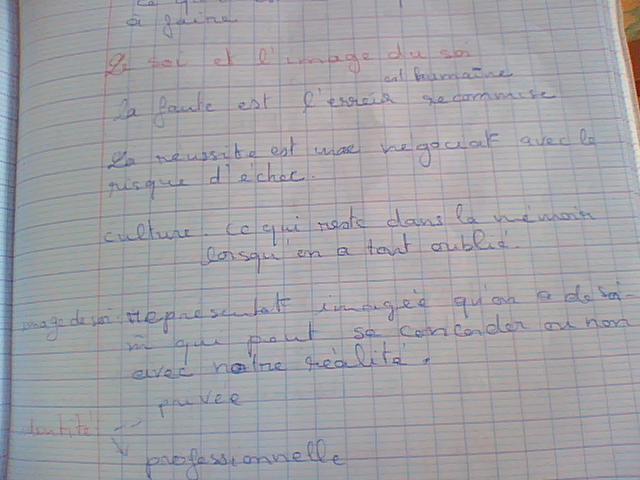 à faire
Le soi et l'image du soi
est humaine
la faute est l'erreur recommise
La reussite est une negociat avec le
risque d'échec.
culture. Ce qui reste dans la mémoir
lorsqu'on a tout oublié.
image de soi: représentat imagée qu'on a de soi-
m qui peut se concorder ou non
avec notre réalité.
privée
identité
professionnelle